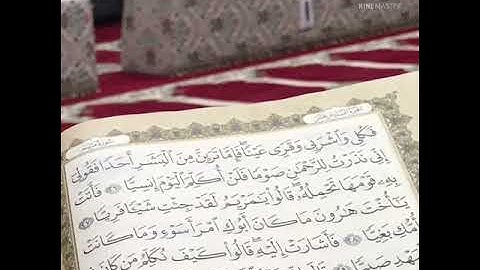 KINEMASTER
سورة مريم
الجزء السادس عشر
فَكُلِي وَٱشْرَبِي وَقَرِّي عَيْنًا ۖ فَإِمَّا تَرَيِنَّ مِنَ ٱلْبَشَرِ أَحَدًا فَقُولِيٓ
إِنِّي نَذَرْتُ لِلرَّحْمَٰنِ صَوْمًا فَلَنْ أُكَلِّمَ ٱلْيَوْمَ إِنسِيًّا ۝٢٦ فَأَتَتْ
بِهِۦ قَوْمَهَا تَحْمِلُهُۥ ۖ قَالُوا۟ يَٰمَرْيَمُ لَقَدْ جِئْتِ شَيْـًٔا فَرِيًّا ۝٢٧
يَٰٓأُخْتَ هَٰرُونَ مَا كَانَ أَبُوكِ ٱمْرَأَ سَوْءٍ وَمَا كَانَتْ
أُمُّكِ بَغِيًّا ۝٢٨ فَأَشَارَتْ إِلَيْهِ ۖ قَالُوا۟ كَيْفَ نُكَلِّمُ مَن كَانَ
صَبِيًّا